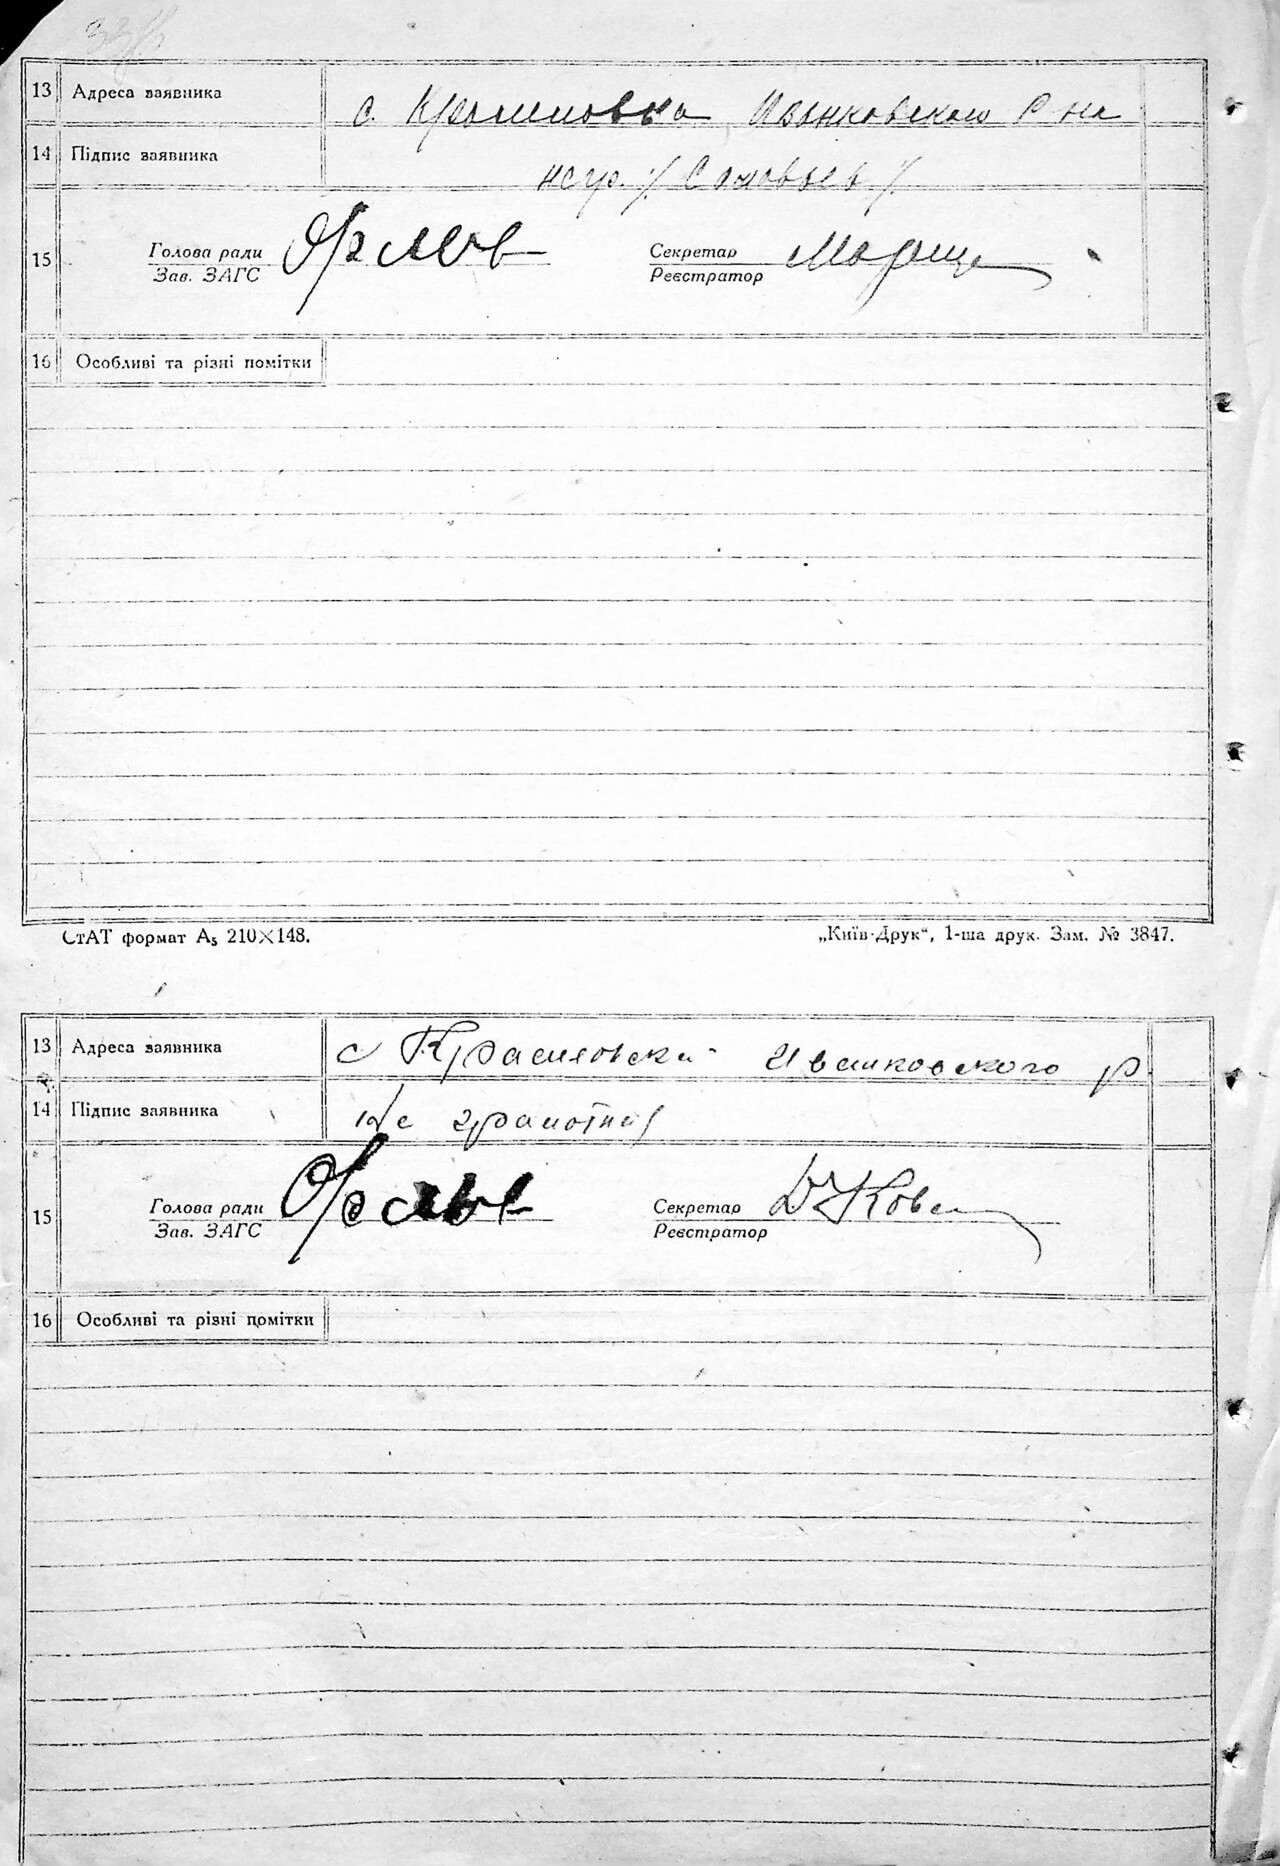 13 Адреса заявника с. Красиловка Иванковского р на
14 Підпис заявника негр. /Соловьев/
15 Голова ради Орлов Секретар
Зав. ЗАГС Реєстратор
16 Особливі та різні помітки
СтАТ формат А₅ 210×148. „Київ-Друк“, 1-ша друк. Зам. № 3847.
13 Адреса заявника с Красиловка Иванковского р
14 Підпис заявника не грамотный
15 Голова ради Орлов Секретар
Зав. ЗАГС Реєстратор
16 Особливі та різні помітки